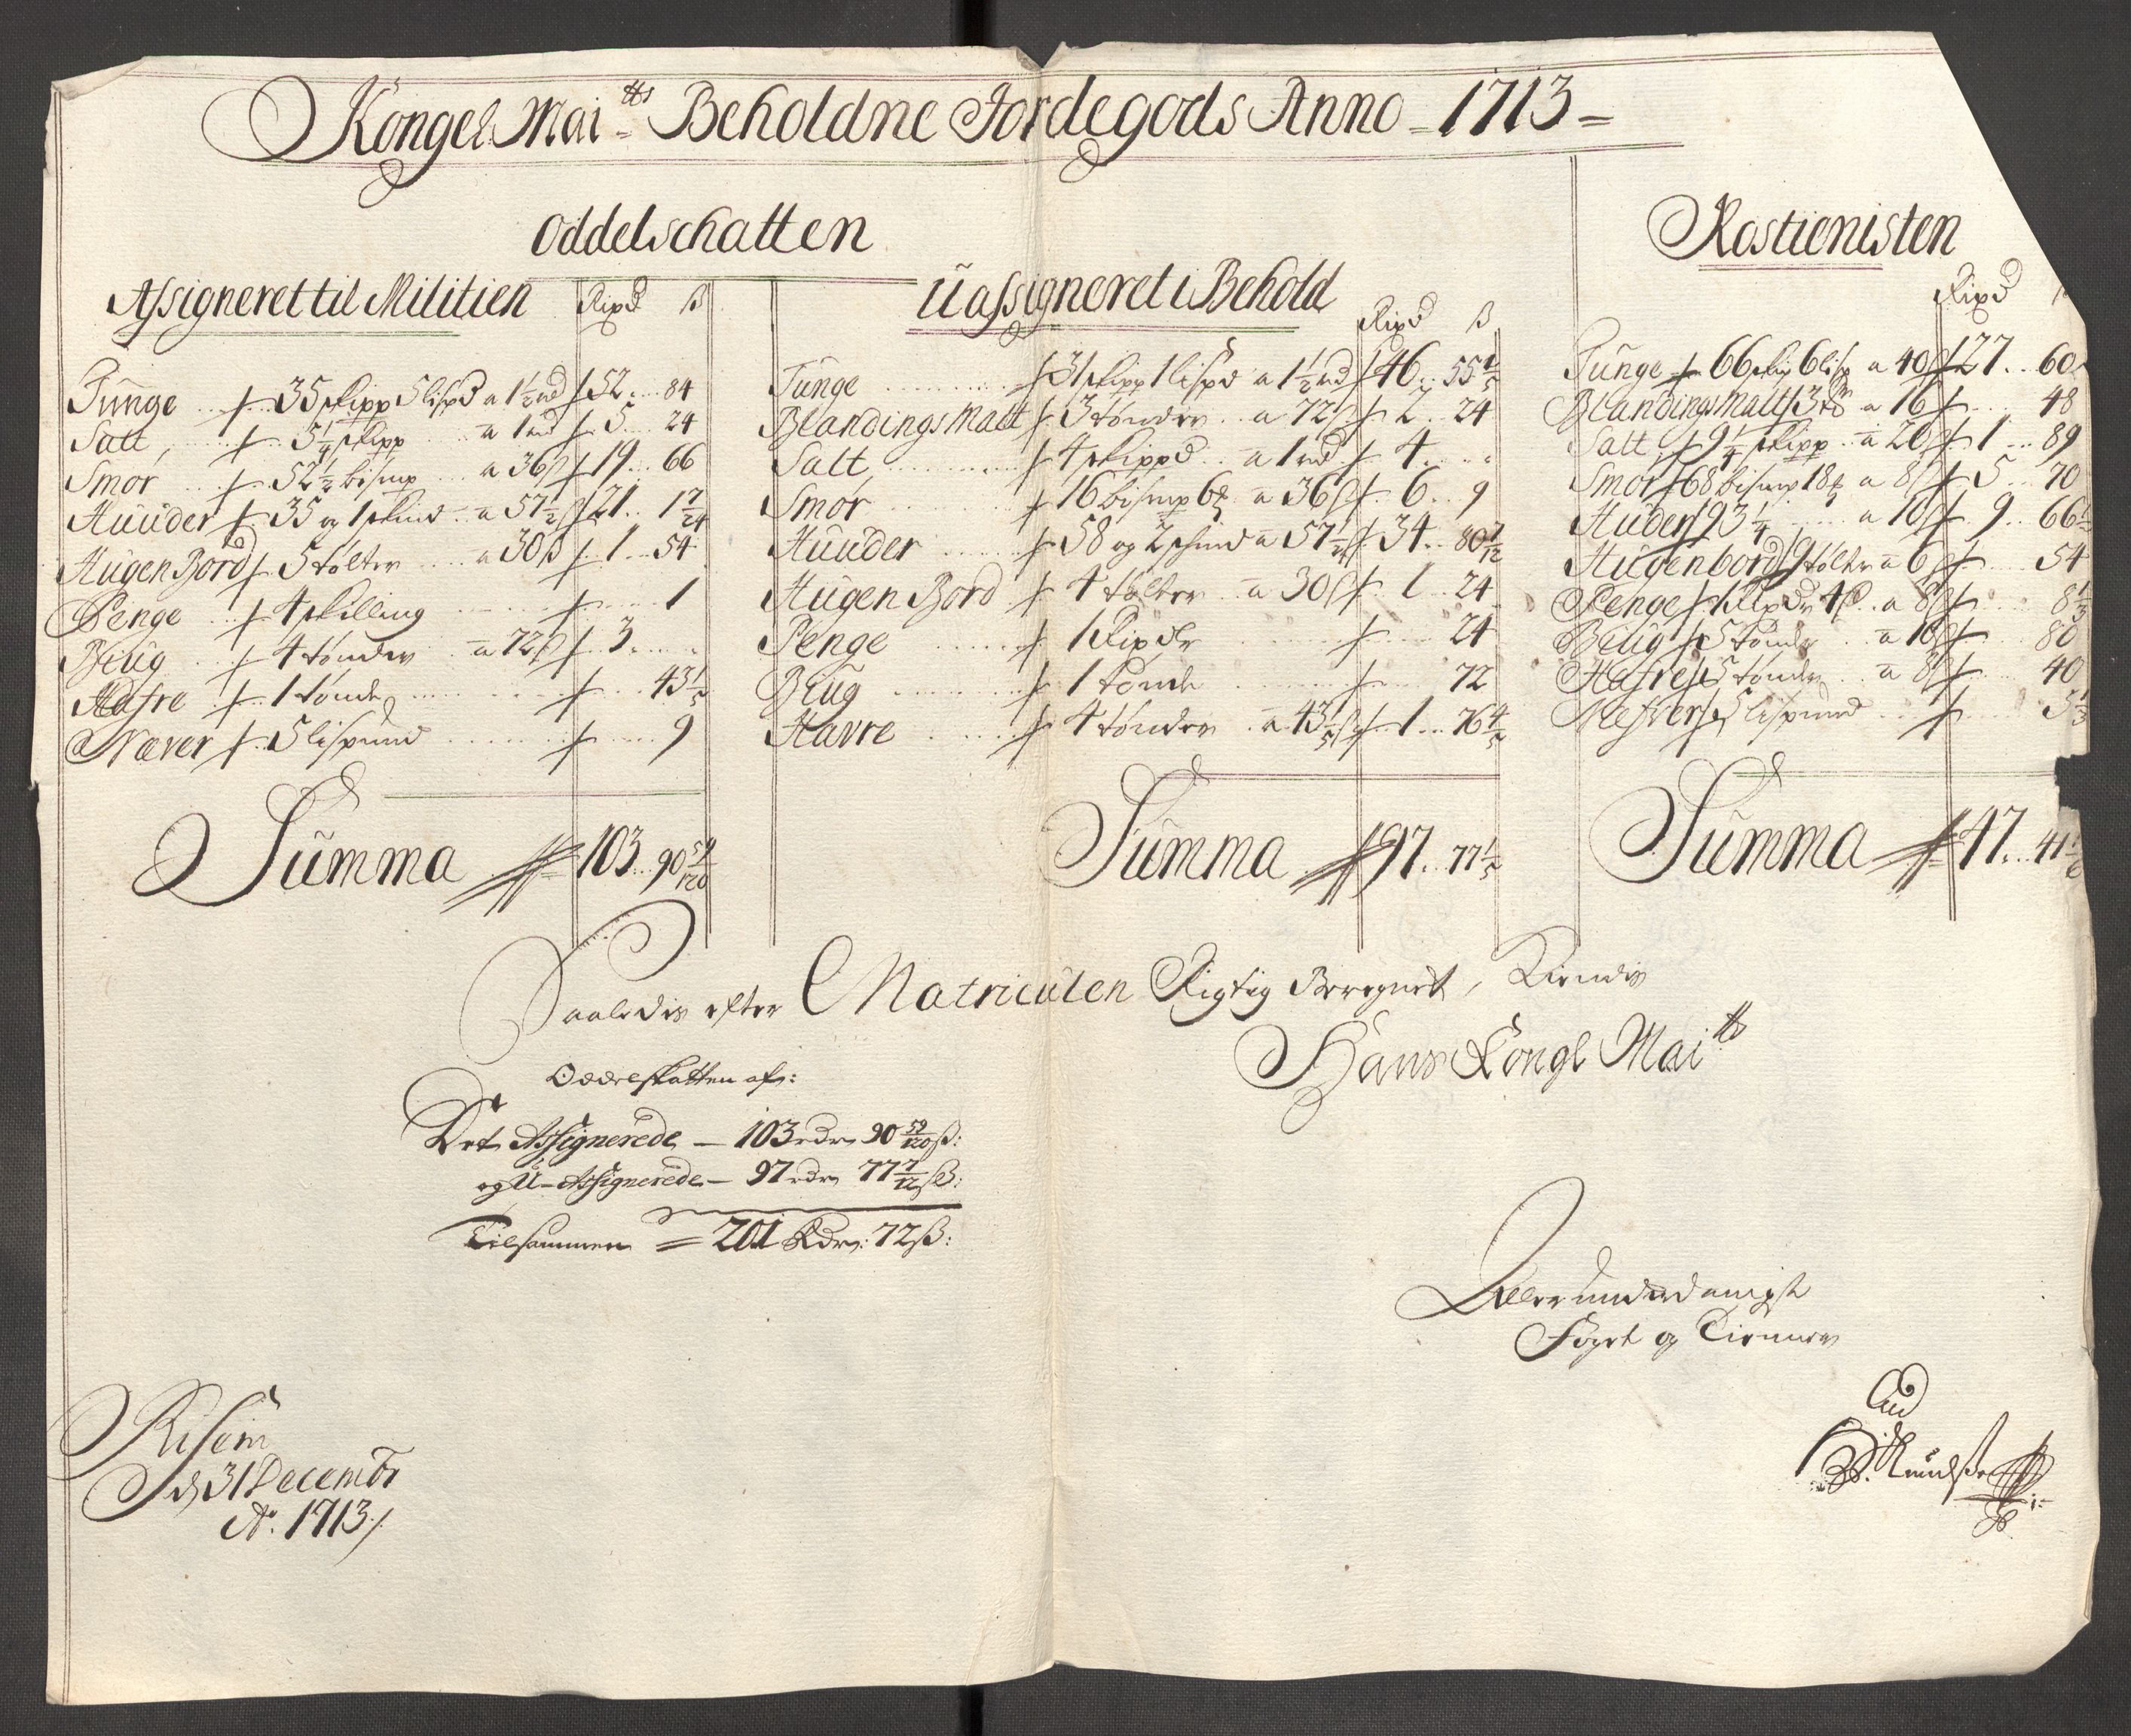 Kongel Mai tts Beholdne Jordegods Anno = 1713 =
Oddelschatten
Assigneret til Militien Rixd ß
Tunge 35 skipp 5 lispd a 1½ rd 52 84
Salt 5¼ skipp a 1 rd 5 24
Smør 52½ bismp a 36 ß 19 66
Huuder 35 og 1 skind a 57½ ß 21 1 7/24
HugenBord 5 tolter a 30 ß 1 54
Penge 4 skilling 1
Biug 4 tønder a 72 ß 3
Hafre 1 tønde 43 1/5
Næver 5 lispund 9
Summa 103 90 59/120
Uassigneret i Behold Rixd ß
Tunge 31 skipp 1 lispd a 1½ rd 46 55 1/5
Blandings Malt 3 tønder a 72 ß 2 24
Salt 4 skippd a 1 rd 4
Smør 16 bismp 6 a 36 ß 6 9
Huuder 58 og 2 skind a 57½ ß 34 80 7/12
Hugen Bord 4 tolter a 30 ß 1 24
Penge 1 Rixdr 24
Biug 1 tønde 72
Havre 4 tønder a 43 1/5 ß 1 76 4/5
Summa 97 77
Rostienisten
Rixd
Tunge 66 skip 6 lisp a 40 ß 27 60
Blandings Malt 3 a 16 ß 48
Salt 9¼ skipp a 20 ß 1 89
Smør 68 bismp 18 a 8 ß 5 70
Huder 93¼ a 10 ß 9 66
Hugenbord 9 tolter a 6 ß 54
Penge 1 Rixdr 4 ß a 8 ß 8 1/3
Beiug 5 tønder a 16 ß 80
Hafre 5 tønder a 8 ß 40
Nefver 5 lispund
Summa 47 41
Saaledis efter Matriculen Rigtig Beregnet, Kiendis
Hans Kongl Mai tts
Oddelskatten af:
Det Assignerede — 103 rdr 90 59/120 ß:
og U-Assignerede — 97 rdr 77 7/12 ß:
Tilsammen = 201 Rdr: 72 ß:
Allerunderdanigste
Fogt og Tienner
Risem
d 31 Decembr
Ao. 1713